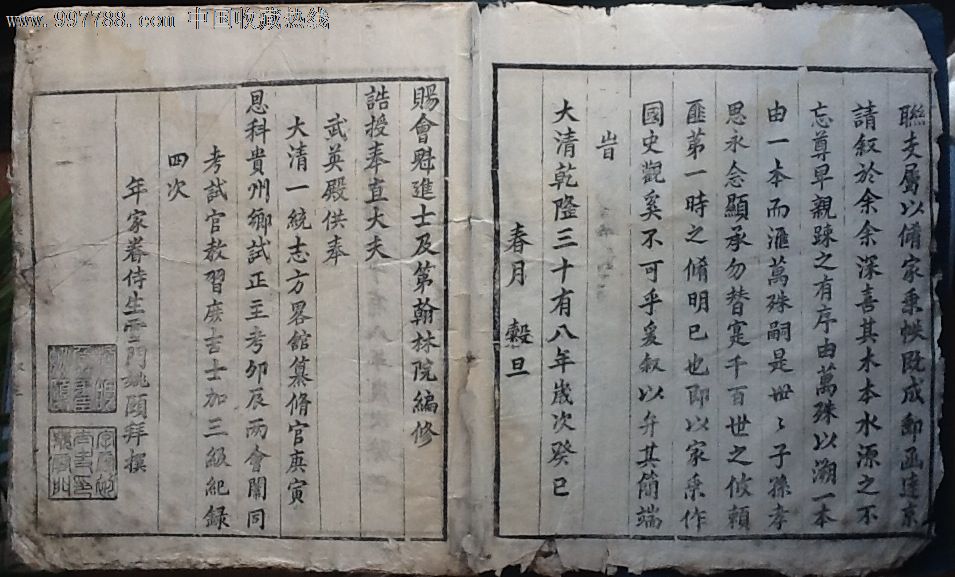 www.997788.com 中国收藏热线
聯支屬以脩家乘帙既成郵函達京
請叙於余余深喜其木本水源之不
忘尊卑親踈之有序由萬殊以溯一本
由一本而滙萬殊嗣是世〻子孫孝
思永念顯承勿替寔千百世之攸賴
匪第一時之脩明已也即以家乘作
國史觀奚不可乎爰叙以弁其簡端
旹
大清乾隆三十有八年歲次癸巳
春月 穀旦
賜會魁進士及第翰林院編修
誥授奉直大夫
武英殿供奉
大清一統志方畧舘纂脩官庚寅
恩科貴州鄉試正主考卯辰兩會闈同
考試官教習庶吉士加三級紀録
四次
年家眷侍生雪門姚頤拜撰